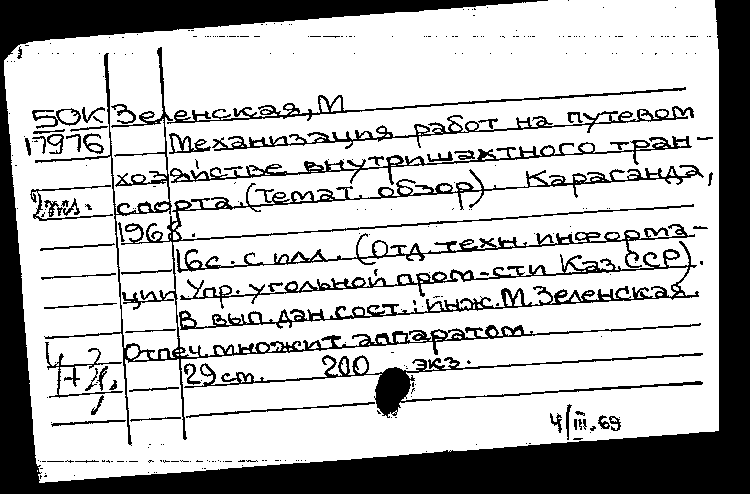 50К Зеленская, М
17976 Механизация работ на путевом
хозяйстве внутришахтного тран-
спорта. (Темат. обзор). Караганда,
1968.
16с. с илл. (Отд. техн. информа-
ции. Упр. угольной пром-сти Каз.ССР).
В вып. дан. сост.: инж. М. Зеленская.
Отпеч. множит. аппаратом.
29 ст. 200 экз.
4/III.69